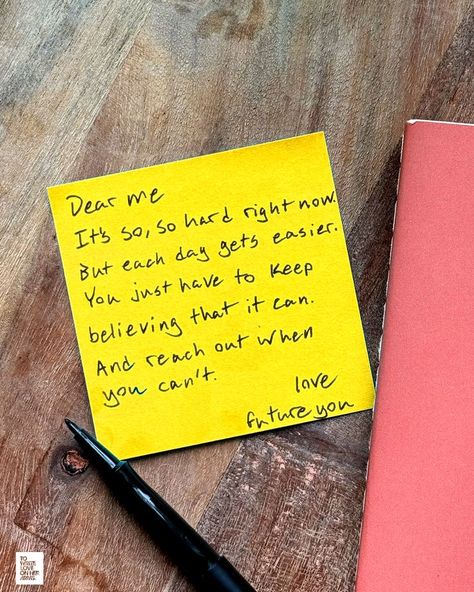 Dear me
It's so, so hard right now.
But each day gets easier.
You just have to keep
believing that it can.
And reach out when
you can't.
love
future you
TO
WRITE
LOVE
ON HER
ARMS.